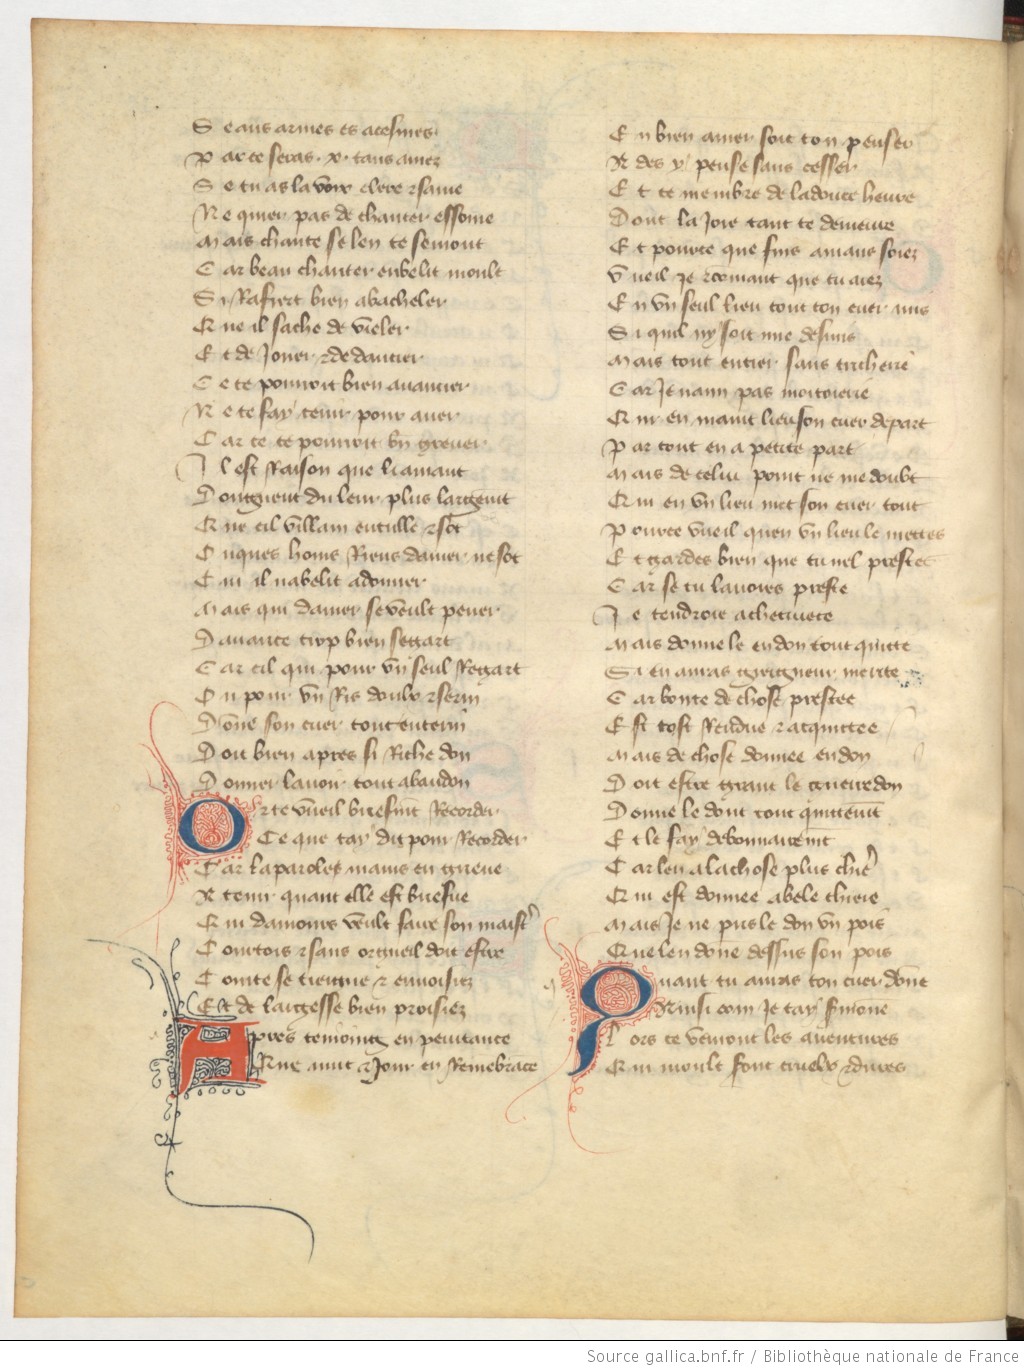 S e aus armes es acesmes
P ar ce seras .x. tans amez
S e tu as la voix clere & saine
N e quier pas de chanter essoine
M ais chante se len te semont
C ar beau chanter enbelit moult
S i Rafiert bien a bacheler
Q ue il sache de vieler
E t de Jouer & de dancier
C e te pourroit bien auancier
N e te fay tenir pour auer
C ar ce te pourroit bn greuer
I l est Raison que li amant
D oingnent du leur plus largemt
Q ue cil villain entulle & sot
O nques homs Riens damer ne sot
C ui il nabelit a donner
M ais qui damer se veult pener
D auarice trop bien se gart
C ar cil qui pour vn seul Regart
O u pour vn Ris doulx & serin
D one son cuer tout enterin
D oit bien apres si Riche don
D onner lauoir tout abandon
O r te vueil briefmt Recorder
Ce que tay dit pour Recorder
C ar la parole mains en grieue
R tenir quant elle est briefue
Q ui damours veult faire son maistr
C ourtois & sans orgueil doit estre
C ointe se tiengne & enuoisiez
E t de largesse bien proisiez
A pres tenioing en penitance
Que nuit & Jour en Remebrace
E n bien amer soit ton penser
R des y pense sans cesser
E t te membre de la douce heure
D ont la Joie tant te demeure
E t pource que fins amans soiez
V ueil je & comant que tu aiez
E n vn seul lieu tout ton cuer mis
S i quil ny soit mie demis
M ais tout entier sans tricherie
C ar Je naim pas moitoierie
Q ui en maint lieu son cuer depart
P ar tout en a petite part
M ais de celui point ne me doubt
Q ui en vn lieu met son cuer tout
P ource vueil quen vn lieu le mettes
E t gardes bien que tu nel prestes
C ar se tu lauoies preste
J e tendroie a chetiuete
M ais donne le en don tout quitte
S i en auras greigneur merite
C ar bonte de chose prestee
E st tost Rendue & acquittee
M ais de chose donnee en don
D oit estre grant le guerredon
D onne le dont tout quittemt
E t le fay debonnairemt
C ar len a la chose plus chier
Q ui est donnee a bele chiere
M ais Je ne pris le don vn pois
Q ue len done dessus son pois
Q uant tu auras ton cuer done
Ainsi com Je tay sermone
L ors te venront les auentures
Q ui moult sont cruelx & dures
Source gallica.bnf.fr / Bibliothèque nationale de France